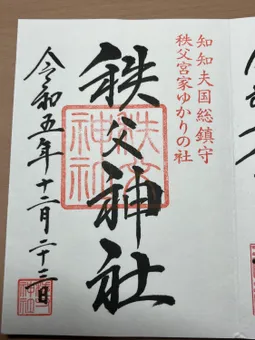 知知夫国総鎮守
秩父宮家ゆかりの社
秩父神社
秩父
神社
令和五年十二月二十三日